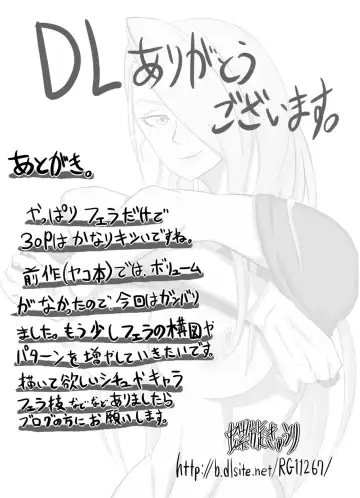 DLありがとう
ございます。
あとがき。
やっぱりフェラだけで
30Pはかなりキツいですね。
前作(ヤコ本)では、ボリューム
がなかったので、今回はガンバリ
ました。もう少しフェラの構図や
パターンを増やしていきたいです。
描いて欲しいシチュやキャラ
フェラ技などなどありましたら
ブログの方にお願いします。
きゅうり
http://b.dlsite.net/RG11267/